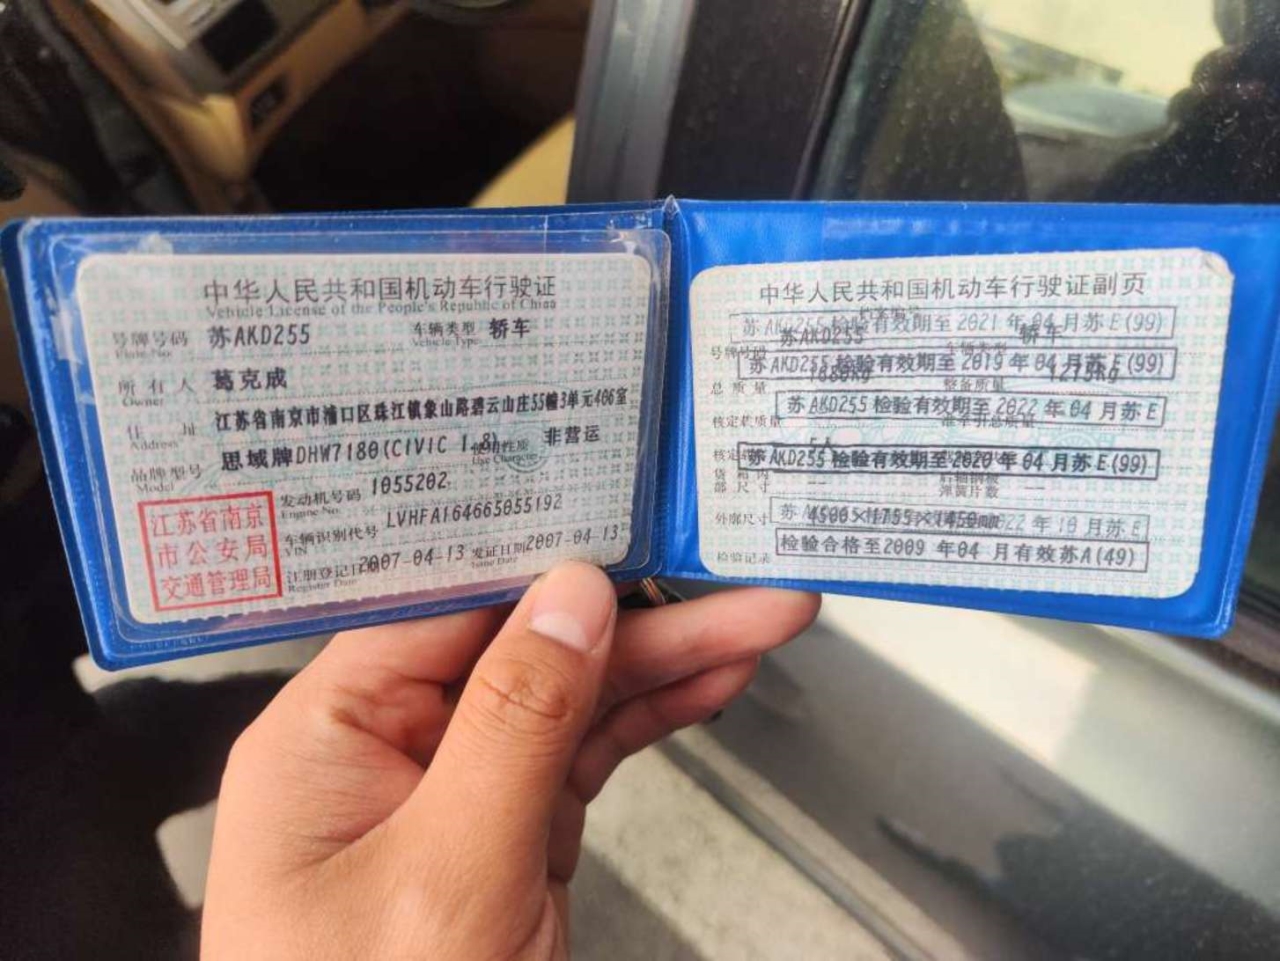 中华人民共和国机动车行驶证
Vehicle License of the People's Republic of China
号牌号码 苏AKD255 车辆类型 轿车
Plate No. Vehicle Type
所有人 葛克成
Owner
住址 江苏省南京市浦口区珠江镇象山路碧云山庄55幢3单元406室
Address
品牌型号 思域牌DHW7180(CIVIC 1.8) 使用性质 非营运
Model Use Character
发动机号码 1055202
Engine No.
车辆识别代号 LVHFA164665055192
VIN
注册登记日期 2007-04-13 发证日期 2007-04-13
Register Date Issue Date
江苏省南京
市公安局
交通管理局
中华人民共和国机动车行驶证副页
苏AKD255 检验有效期至 2021 年 04 月苏E(99)
号牌号码 苏AKD255 车辆类型 轿车
苏AKD255 检验有效期至 2019 年 04 月苏E(99)
总质量 整备质量 1215kg
苏AKD255 检验有效期至 2022 年 04 月苏E
核定载质量 准牵引总质量
5人
苏AKD255 检验有效期至 2020 年 04 月苏E(99)
货箱内部尺寸 -- 后轴钢板弹簧片数 --
外廓尺寸 4500×1755×1450mm
22 年 10 月苏E
检验合格至2009 年04 月有效苏A(49)
检验记录